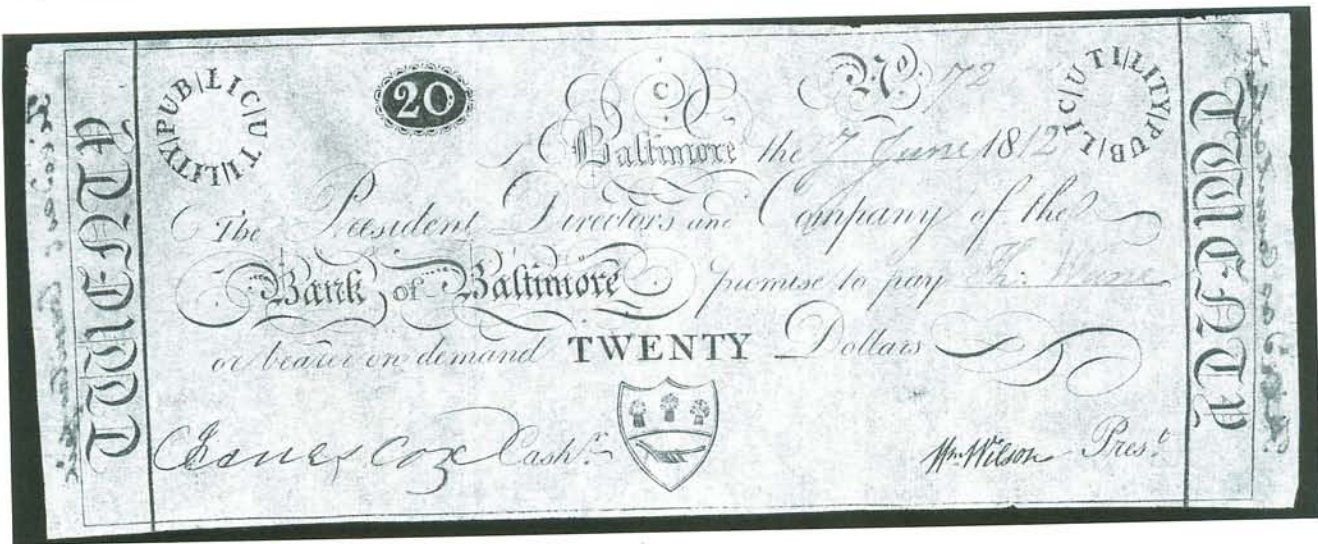 PUB|LIC|UTI|LITY
20
C
No. 72
PUB|LIC|UTI|LITY
Baltimore the 7 June 1812
The President Directors and Company of the
Bank of Baltimore promise to pay
or bearer on demand TWENTY Dollars
James Cox Cash.r
Wm. Wilson Pres.t
TWENTY
TWENTY